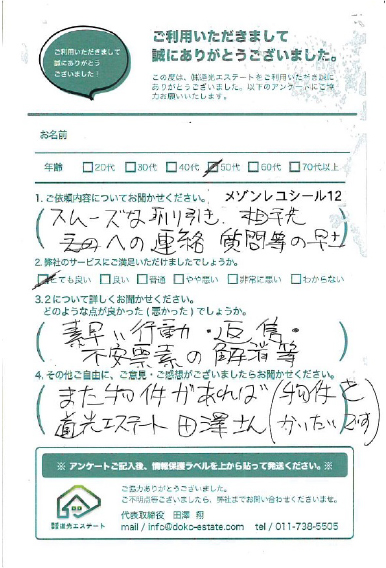 ご利用いただきまして
誠にありがとう
ございました！
ご利用いただきまして
誠にありがとうございました。
この度は、㈱道光エステートをご利用いただき誠に
ありがとうございました。以下のアンケートにご協
力お願いいたします。
お名前
年齢 □20代 □30代 □40代 ☑50代 □60代 □70代以上
1.ご依頼内容についてお聞かせください。 メゾンレコシール12
スムーズな取り引き、相手先
への連絡 質問等の早
2.弊社のサービスにご満足いただけましたでしょうか。
☑とても良い □良い □普通 □やや悪い □非常に悪い □わからない
3.2について詳しくお聞かせください。
どのような点が良かった(悪かった)でしょうか。
素早い行動・返信・
不安要素の解消等
4.その他ご自由に、ご意見・ご感想がございましたらお聞かせください。
また物件があれば(物件を
道光エステート 田澤さん かいたいです)
※ アンケートご記入後、情報保護ラベルを上から貼って発送ください。※
ご協力ありがとうございました。
ご不明点等ございましたら、弊社までお問い合わせくださいませ。
株式会社道光エステート
代表取締役 田澤 翔
mail / info@doko-estate.com tel / 011-738-5505